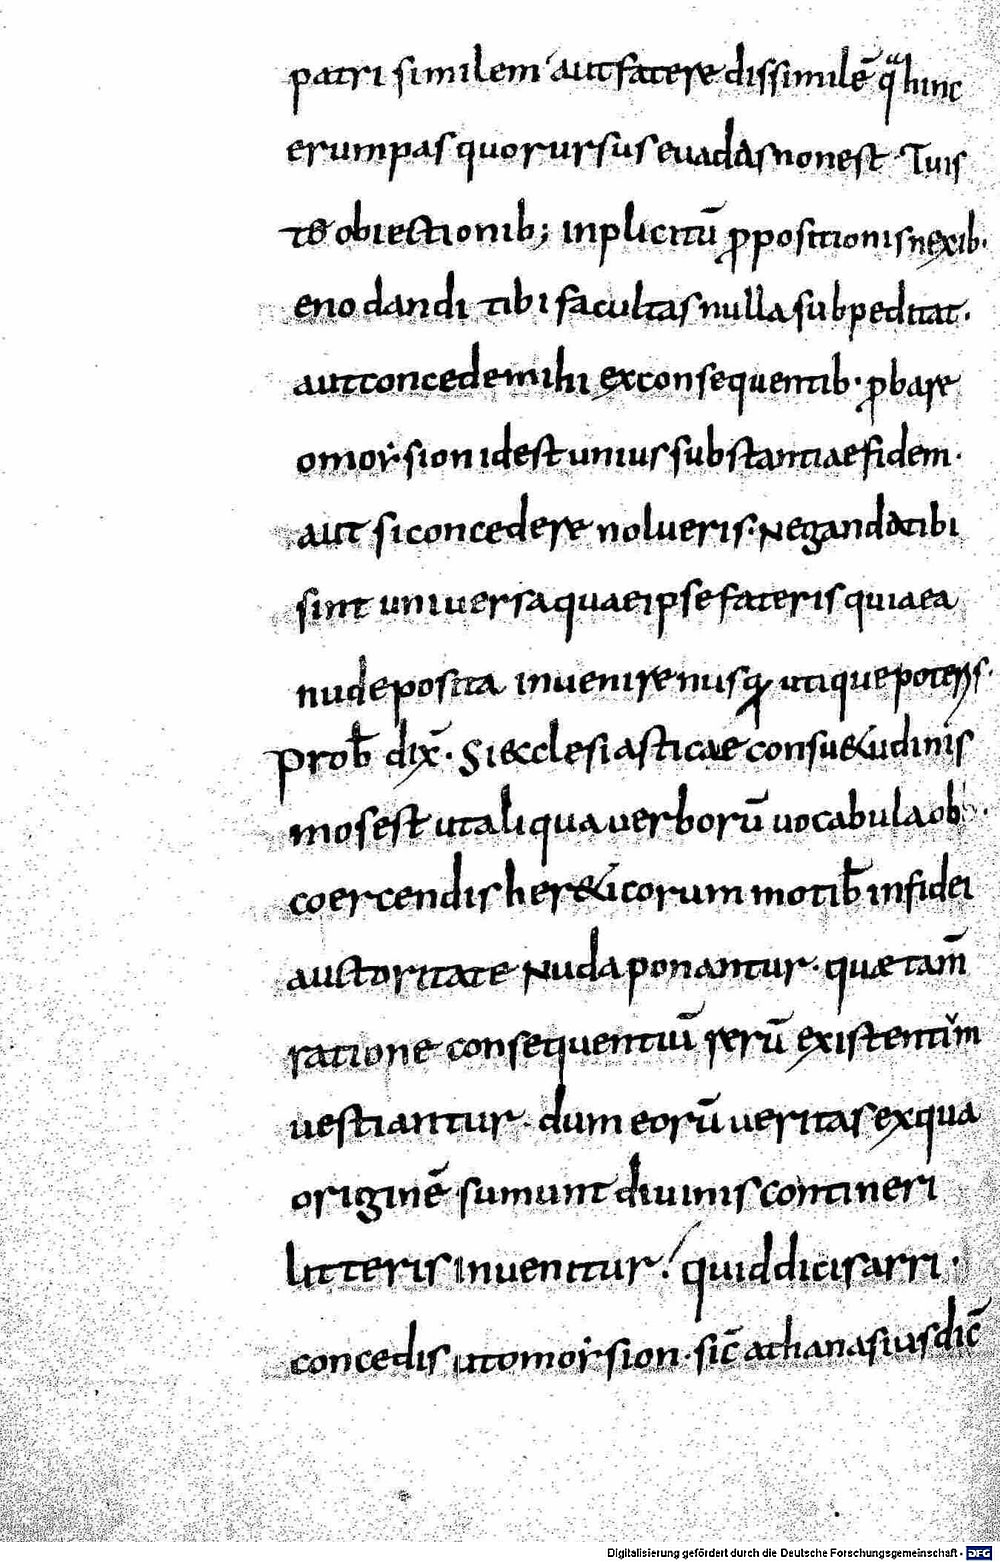 patri similem aut fatere dissimilē qͣ hinc
erumpas quo rursus euadas non est · Tuis
te obiectionib; inplicitū ꝓpositionis nexib·
enodandi tibi facultas nulla subpeditat·
aut concede mihi ex consequentib· ꝓbare
omousion id est unius substantiae fidem·
aut si concedere nolueris· Neganda tibi
sint uniuersa quae ipse fateris quia ea
nude posita inuenire nusq̄ utique poteris·
Prob̄ dix̄· Si ecclesiasticae consuetudinis
mos est ut aliqua uerborū uocabula ob
coercendis hereticorum motib̄ in fidei
auctoritate Nuda ponantur· quae tam̄
ratione consequentiū rerū existentium
uestiantur· dum eorū ueritas ex qua
originē sumunt diuinis contineri
litteris inuenitur! quid dicis arri·
concedis ut omousion· sic̄ athanasius dic̄
Digitalisierung gefördert durch die Deutsche Forschungsgemeinschaft - DFG